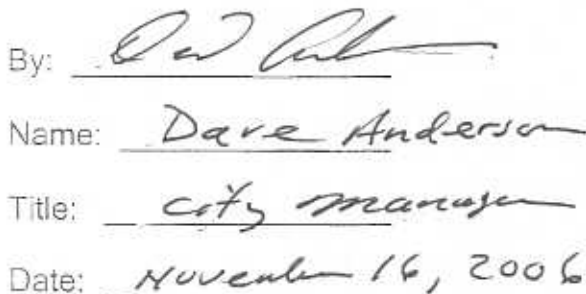 By:
Name: Dave Anderson
Title: City Manager
Date: November 16, 2006